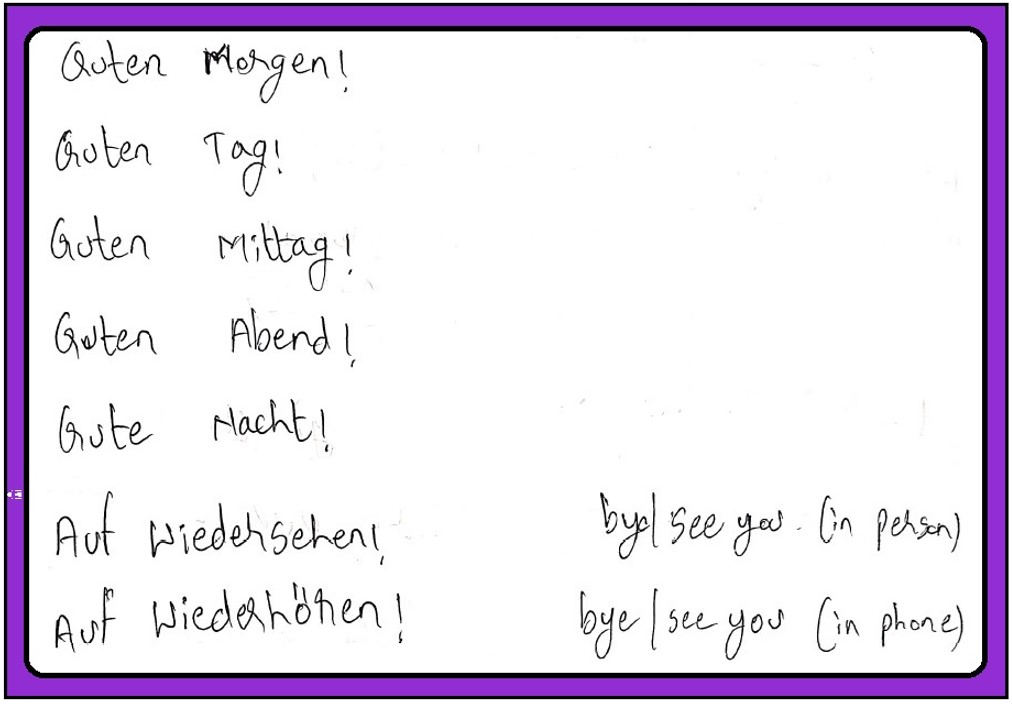 Guten Morgen!
Guten Tag!
Guten Mittag!
Guten Abend!
Gute Nacht!
Auf Wiedersehen! bye/see you. (in person)
Auf Wiederhören! bye/see you (in phone)